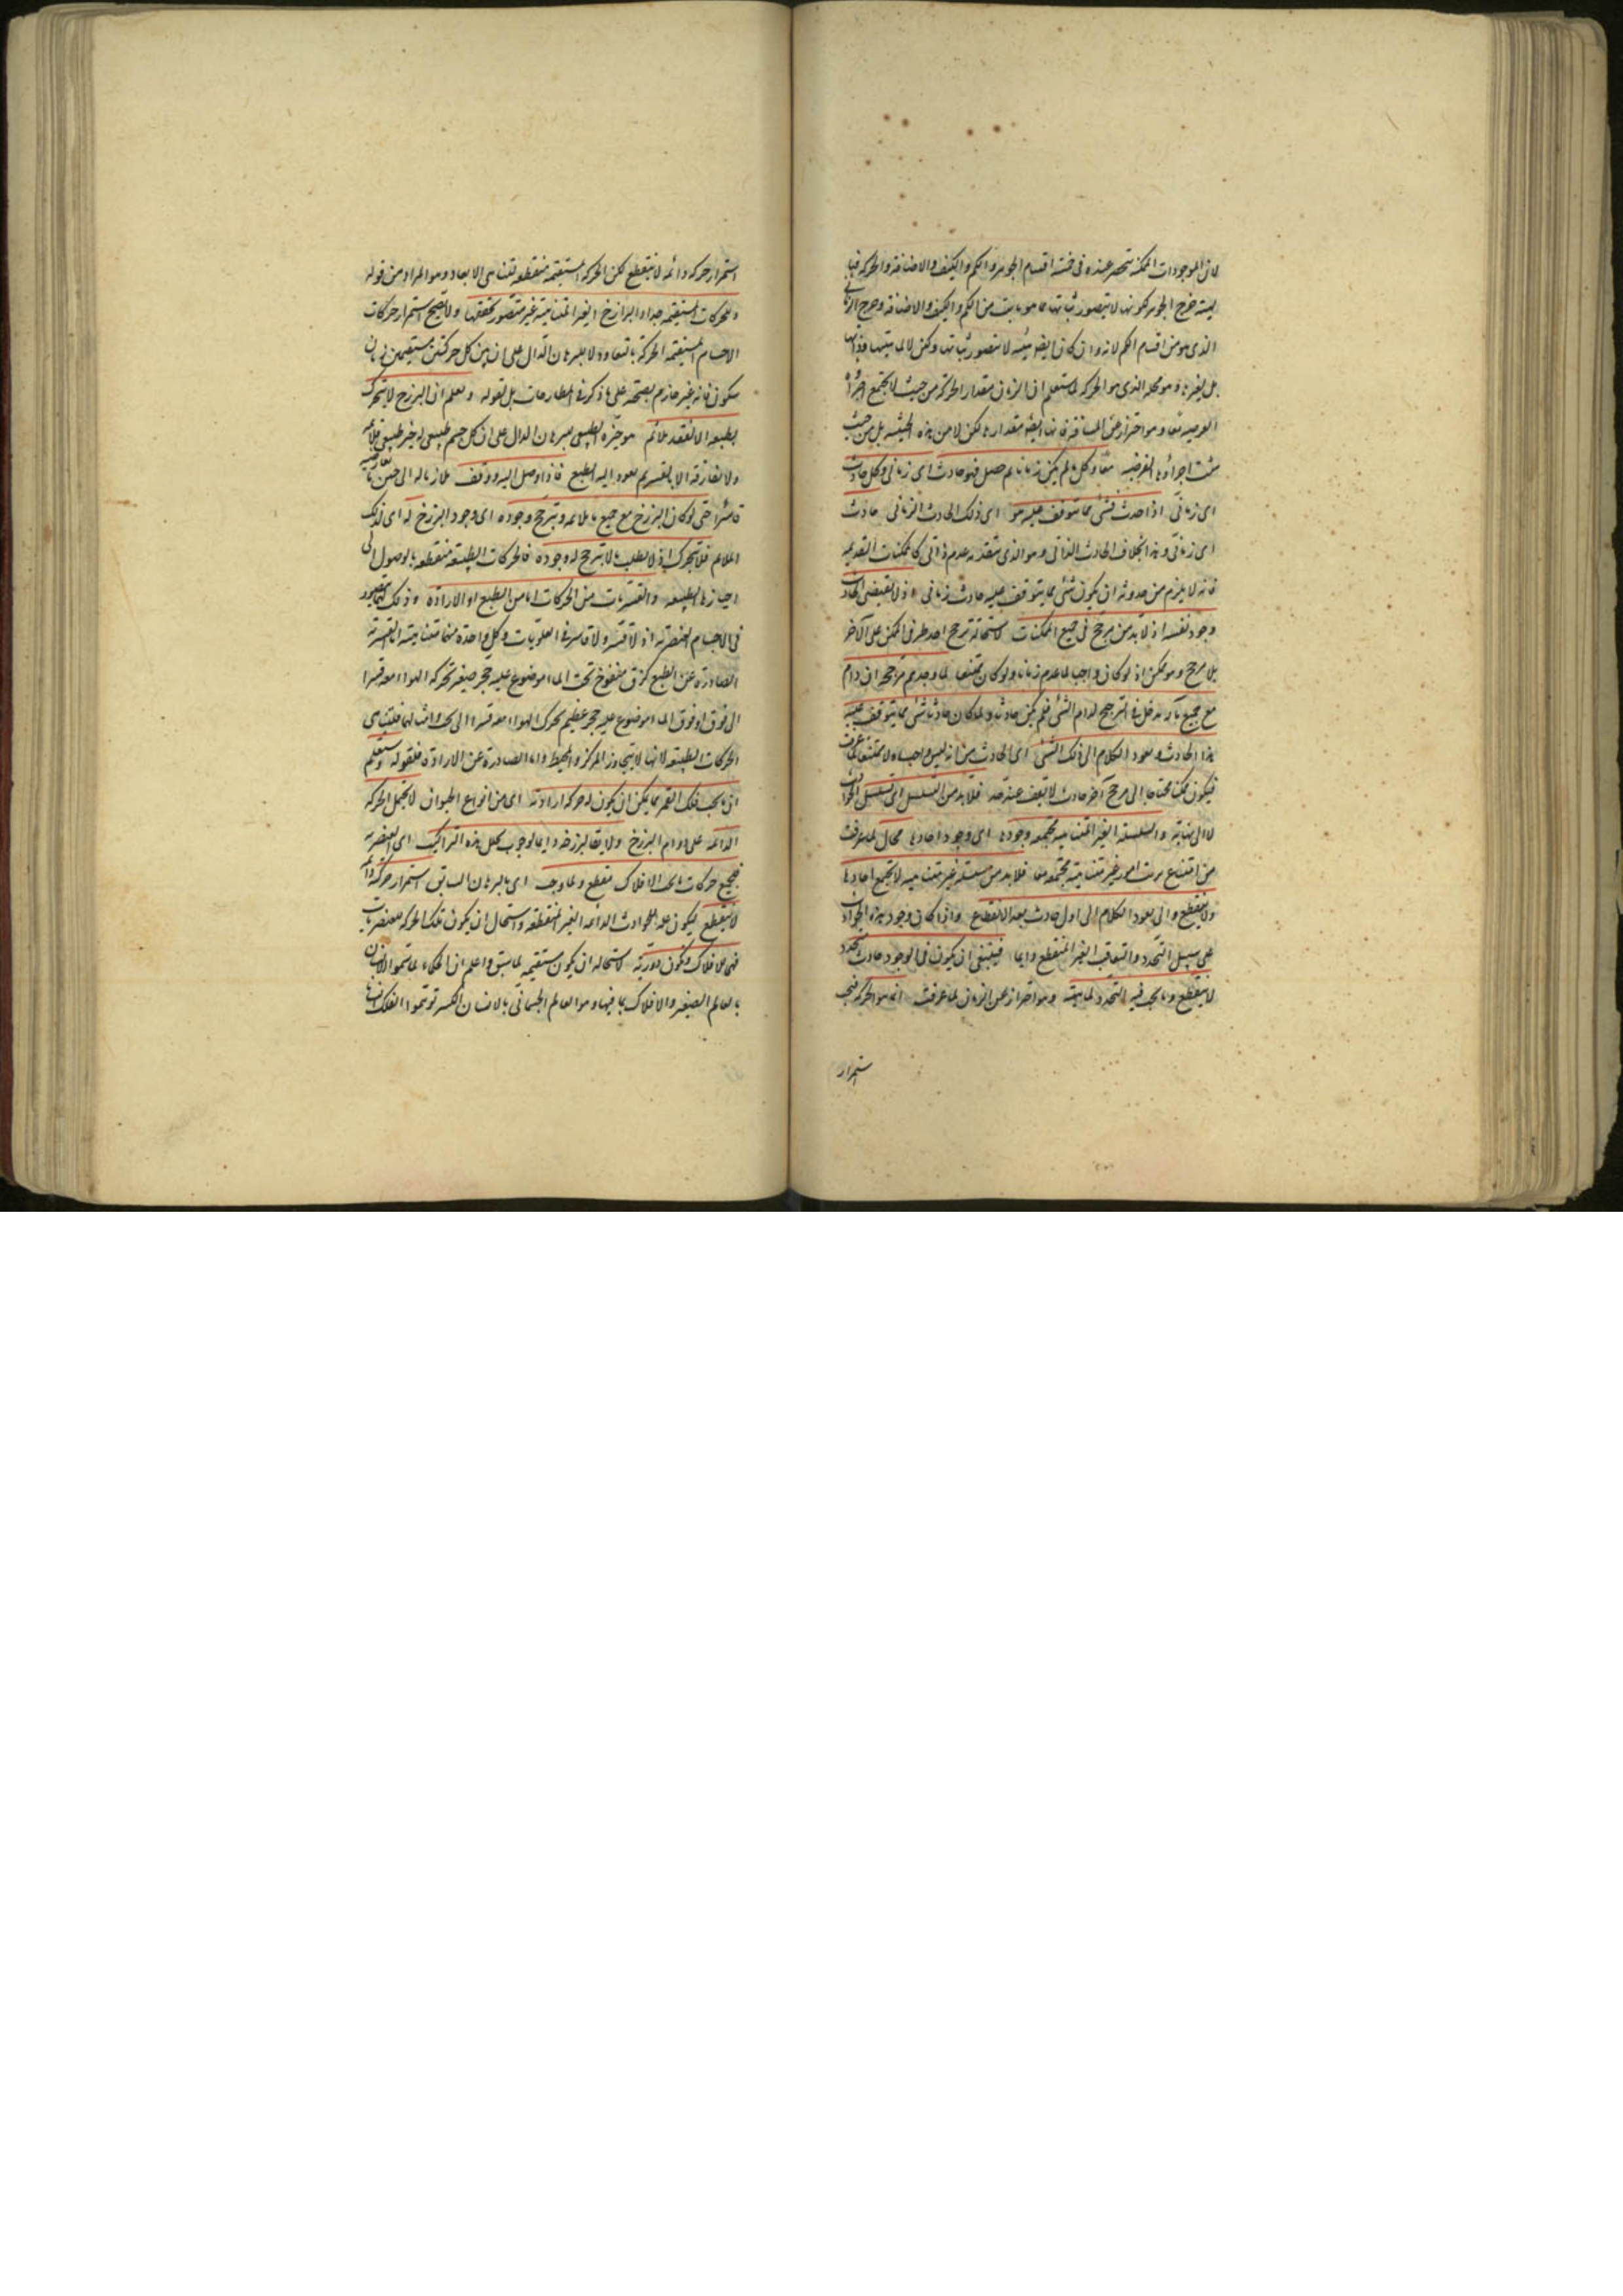 لان الموجودات الممكنة تنحصر عنده فى خمسة اقسام الجوهر والكم والكيف والاضافة والحركة فبا
ليته خرج الجوهر لكونها لا يتصور ثباتها ما هو ثابت من الكم والكيف والاضافة وخرج الزمان
الذى هو من اقسام الكم لانه وان كان ايضا هيئة لا يتصور ثباتها ولكن لا لماهيتها وذاتها
بل لغيرها وهو محله الذى هو الحركة لما ستعلم ان الزمان مقدار الحركة من حيث لا يجتمع اجزاؤه
العرضية معا وهو احتراز عن المسافة فانها ايضا مقدارها لكن لا من هذه الحيثية بل من حيث
يثبت اجزاؤها الفرضية معا وكل ما لم يكن زمانا ثم حصل فهو حادث اى زمانى وكل حادث
اى زمانى اذا حدث فشئ مما يتوقف عليه هو اى ذلك الحادث الزمانى حادث
اى زمانى وهذا بخلاف الحادث الذاتى وهو الذى يتقدمه عدم ذاتى كالممكنات القديمة
فانه لا يلزم من حدوثه ان يكون شئ مما يتوقف عليه حادث زمانى اذ لا يقتضى الحادث
وجود نفسه اذ لا بد من مرجح فى جميع الممكنات لاستحالة ترجح احد طرفى الممكن على الآخر
بلا مرجح وهو ممكن اذ لو كان واجبا لما عدم زمانا ولو كان ممتنعا لما وجد ثم مرجحه ان دام
مع جميع ما له مدخل فى الترجيح لدام الشئ فلم يكن حادثا ولما كان حادثا شئ مما يتوقف عليه
هذا الحادث ويعود الكلام الى ذلك الشئ اى الحادث من انه ليس واجبا ولا ممتنعا لما عرفت
فيكون ممكنا محتاجا الى مرجح آخر حادث لا يقف عند حد فلا بد من التسلسل اى تسلسل الحوادث
لا الى نهاية والسلسلة الغير المتناهية مجتمعة وجودها اى وجود احادها محال لما عرفت
من امتناع ترتب امور غير متناهية مجتمعة معا فلا بد من سلسلة غير متناهية لا يجتمع احادها
ولا ينقطع والا يعود الكلام الى اول حادث بعد الانقطاع واذا كان وجود هذه الحوادث
على سبيل التجدد والتعاقب الغير المنقطع دايما فينبغى ان يكون فى الوجود حادث متجدد
لا ينقطع وما يجب فيه التجدد لماهيته وهو احتراز عن الزمان لما عرفت انما هو الحركة فيجب
استمرار
استمرار حركة دائمة لا تنقطع لكن الحركة المستقيمة منقطعة لتناهى الابعاد وهو المراد من قوله
والحركات المستقيمة حدا والبرازخ الغير المتناهية غير متصور تحققها ولا يصح استمرار حركات
الاجسام المستقيمة الحركة بالتعاود لا للبرهان الدال على ان بين كل حركتين مستقيمتين زمان
سكون فانه غير جازم بصحته على ما ذكر فى المطارحات بل لقوله وتعلم ان البرزخ لا يتحرك
بطبعه الا لفقد ملائم هو حيزه الطبيعى لبرهان الدال على ان كل جسم طبيعى له حيز طبيعى ملائمه
ولا يفارقه الا بالقسر ثم يعود اليه بالطبع فاذا وصل اليه ووقف ملازما له الى حين
قاسرا حتى لو كان البرزخ مع جميع ما يلائمه وتترجح وجوده اى وجود البرزخ له اى لذلك
الملائم فلا يتحرك اذ لا يطلب ما لا يترجح له وجوده فالحركات الطبيعية منقطعة بالوصول الى
احيازها الطبيعية والقسريات من الحركات اما من الطبع او الارادة وذلك انما يتصور
فى الاجسام العنصرية اذ لا قسر ولا قاسر فى العلويات وكل واحدة منها متناهية القسرية
الصادرة عن الطبع كزق منفوخ تحت الماء موضوع عليه حجر صغير تحركه الهواء معه قسرا
الى فوق او فوق الماء موضوع عليه حجر عظيم يحرك الهواء معه قسرا الى تحت وامثالهما فلتناهى
الحركات الطبيعية لانها لا يتجاوز المركز والمحيط واما الصادرة عن الارادة فلقوله وستعلم
ان ما تحت فلك القمر مما يمكن ان يكون له حركة ارادية اى من انواع الحيوان لا تحتمل الحركة
الدائمة على دوام البرزخ ولا بقا لبرزخه دايما لوجوب تحلل هذه التراكيب اى العنصرية
فجميع حركات ما تحت الافلاك منقطع ولما وجب اى بالبرهان السابق استمرار حركة دائمة
لا ينقطع ليكون علة للحوادث الدائمة الغير المنقطعة واستحال ان يكون تلك الحركة للعنصريات
فهى للافلاك وتكون دورية لاستحالة ان يكون مستقيمة لما سبق واعلم ان الحكماء لما سموا الانسان
بالعالم الصغير والافلاك بما فيها وهو العالم الجسمانى بالانسان الكبير توهموا الفلك انسانا